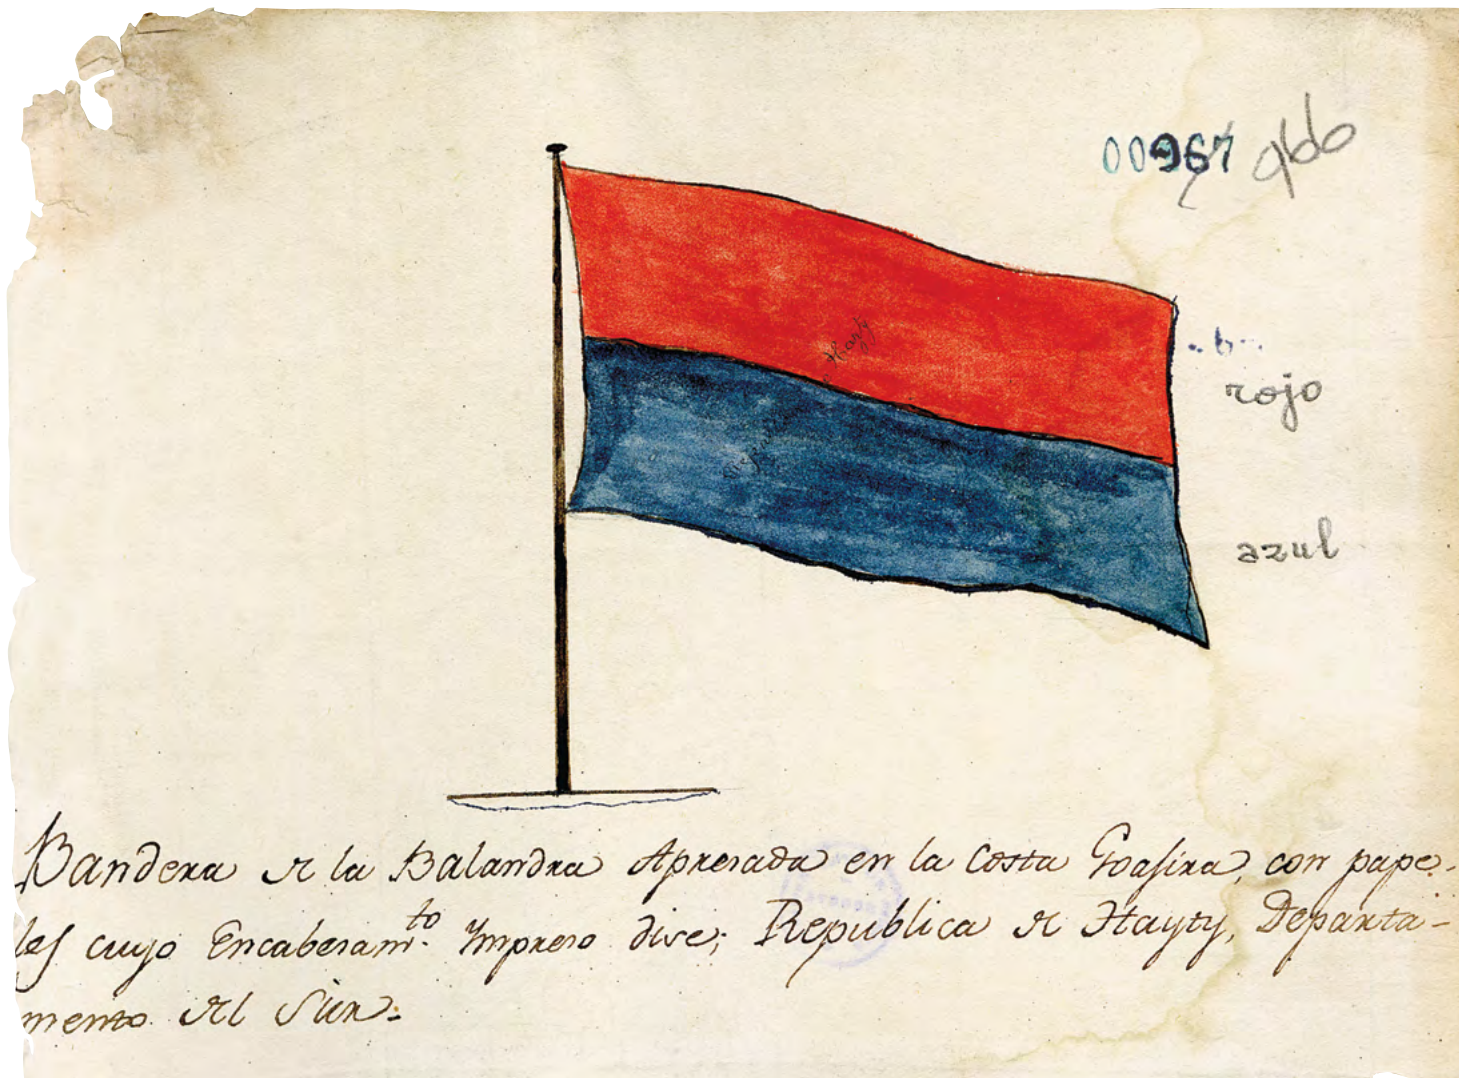 00967 960
Hayty
rojo
azul
Bandera de la Balandra Apresada en la Costa Goagira, con pape-
les cuyo Encabesam.to Impreso dise; Republica de Hayty, Departa-
mento del Sur.